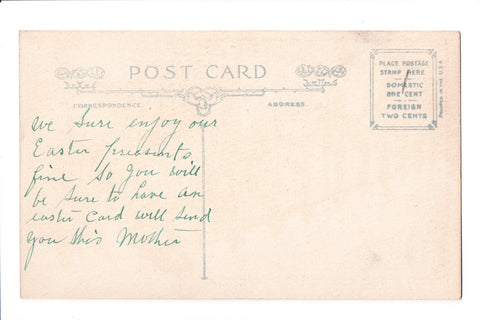 POST CARD
CORRESPONDENCE.
ADDRESS.
PLACE POSTAGE
STAMP HERE
DOMESTIC
ONE CENT
FOREIGN
TWO CENTS
PRINTED IN THE U.S.A.
we sure enjoy our
Easter preasants
fine so you will
be sure to have an
easter Card will send
you this Mother